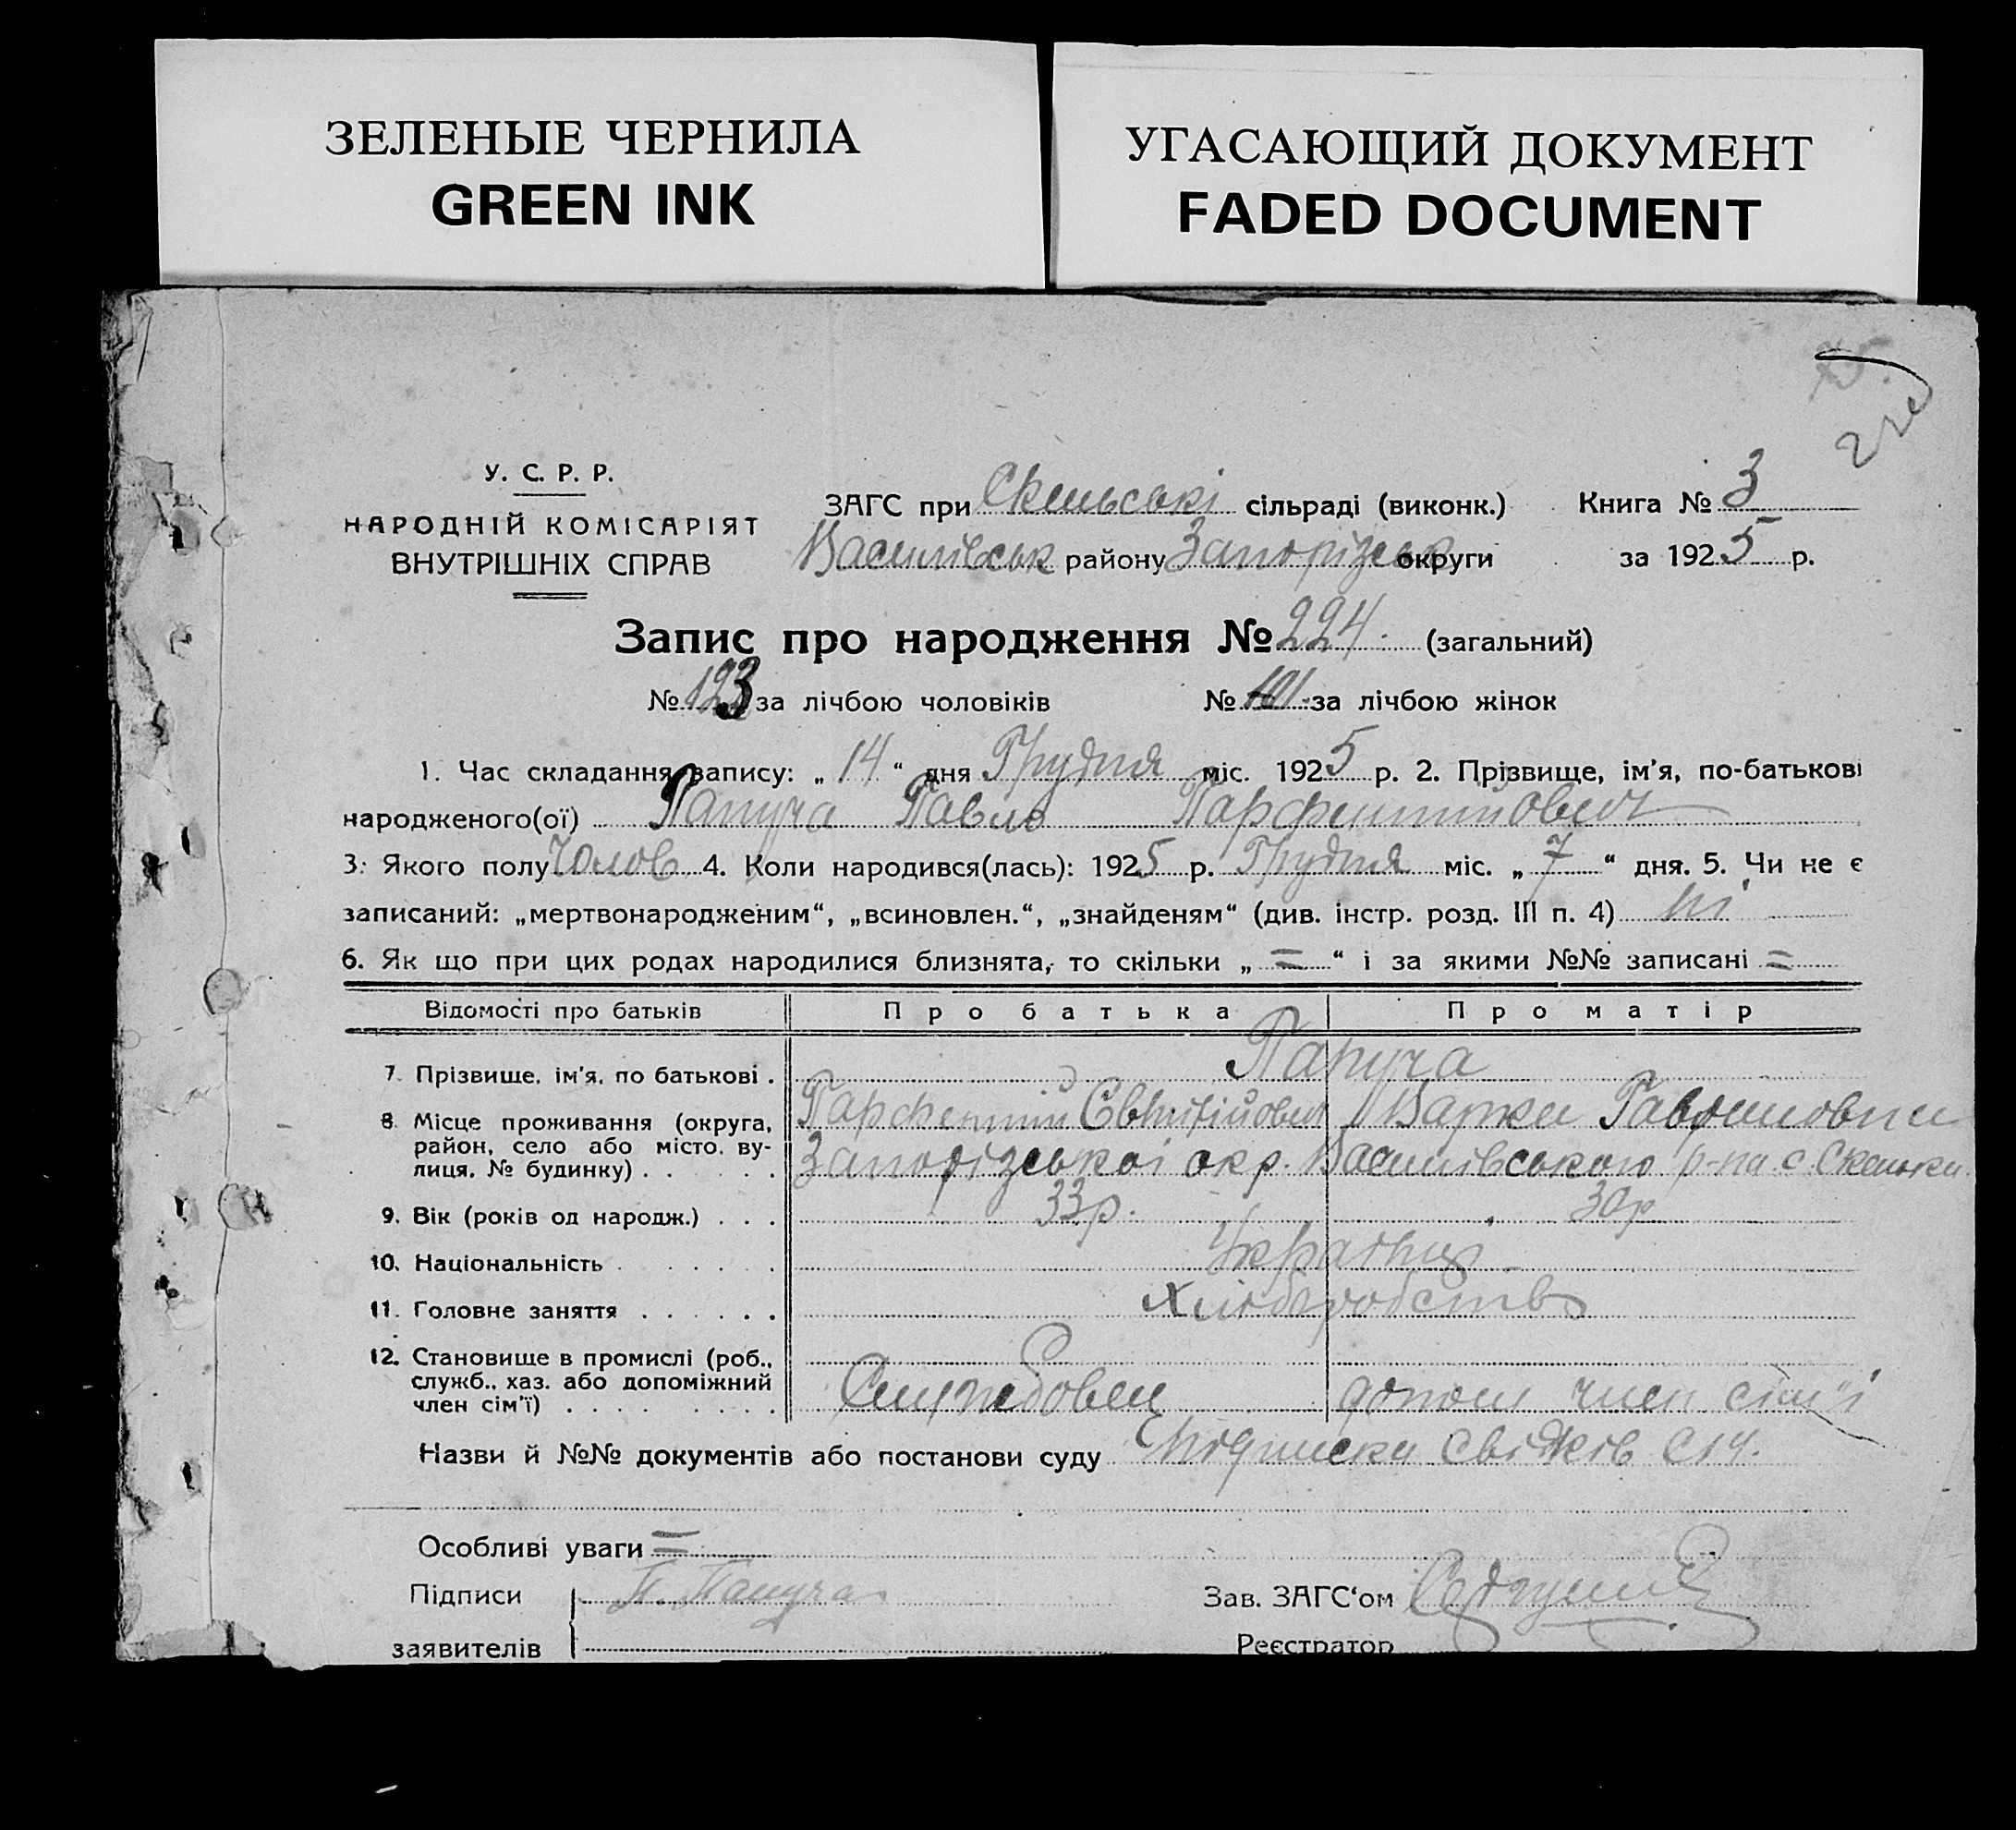 ЗЕЛЕНЫЕ ЧЕРНИЛА
GREEN INK
УГАСАЮЩИЙ ДОКУМЕНТ
FADED DOCUMENT
У. С. Р. Р.
НАРОДНІЙ КОМІСАРІЯТ
ВНУТРІШНІХ СПРАВ
ЗАГС при Скельські сільраді (виконк.) Книга № 3
Василівськ району Запорізськ округи за 1925 р.
Запис про народження № 224. (загальний)
№ 123 за лічбою чоловіків № 101 за лічбою жінок
1. Час складання запису: „ 14 “ дня Грудня міс. 1925 р. 2. Прізвище, ім'я, по-батькові
народженого(ої) Папуча Павло Парфентійович
3. Якого полу Чолов 4. Коли народився(лась): 1925 р. Грудня міс. „ 7 “ дня. 5. Чи не є
записаний: „мертвонародженим“, „всиновлен.“, „знайденям“ (див. інстр. розд. III п. 4) ні
6. Як що при цих родах народилися близнята, то скільки „ = “ і за якими №№ записані =
Відомості про батьків Про батька Про матір
7. Прізвище, ім'я, по батькові . Папуча
Парфентій Варка
8. Місце проживання (округа, район, село або місто, вулиця, № будинку) . . . . Запорізської окр. Василівського р-на с. Скельки.
9. Вік (років од народж.) . . . 33р. 30р
10. Національність . . . . . Українці
11. Головне заняття . . . . . . Хліборобство
12. Становище в промислі (роб., служб., хаз. або допоміжний член сім'ї) . . . . . . Службовец допом член сім'ї
Назви й №№ документів або постанови суду Підписка свідків
Особливі уваги =
Підписи П. Папуча Зав. ЗАГС'ом
заявителів Реєстратор